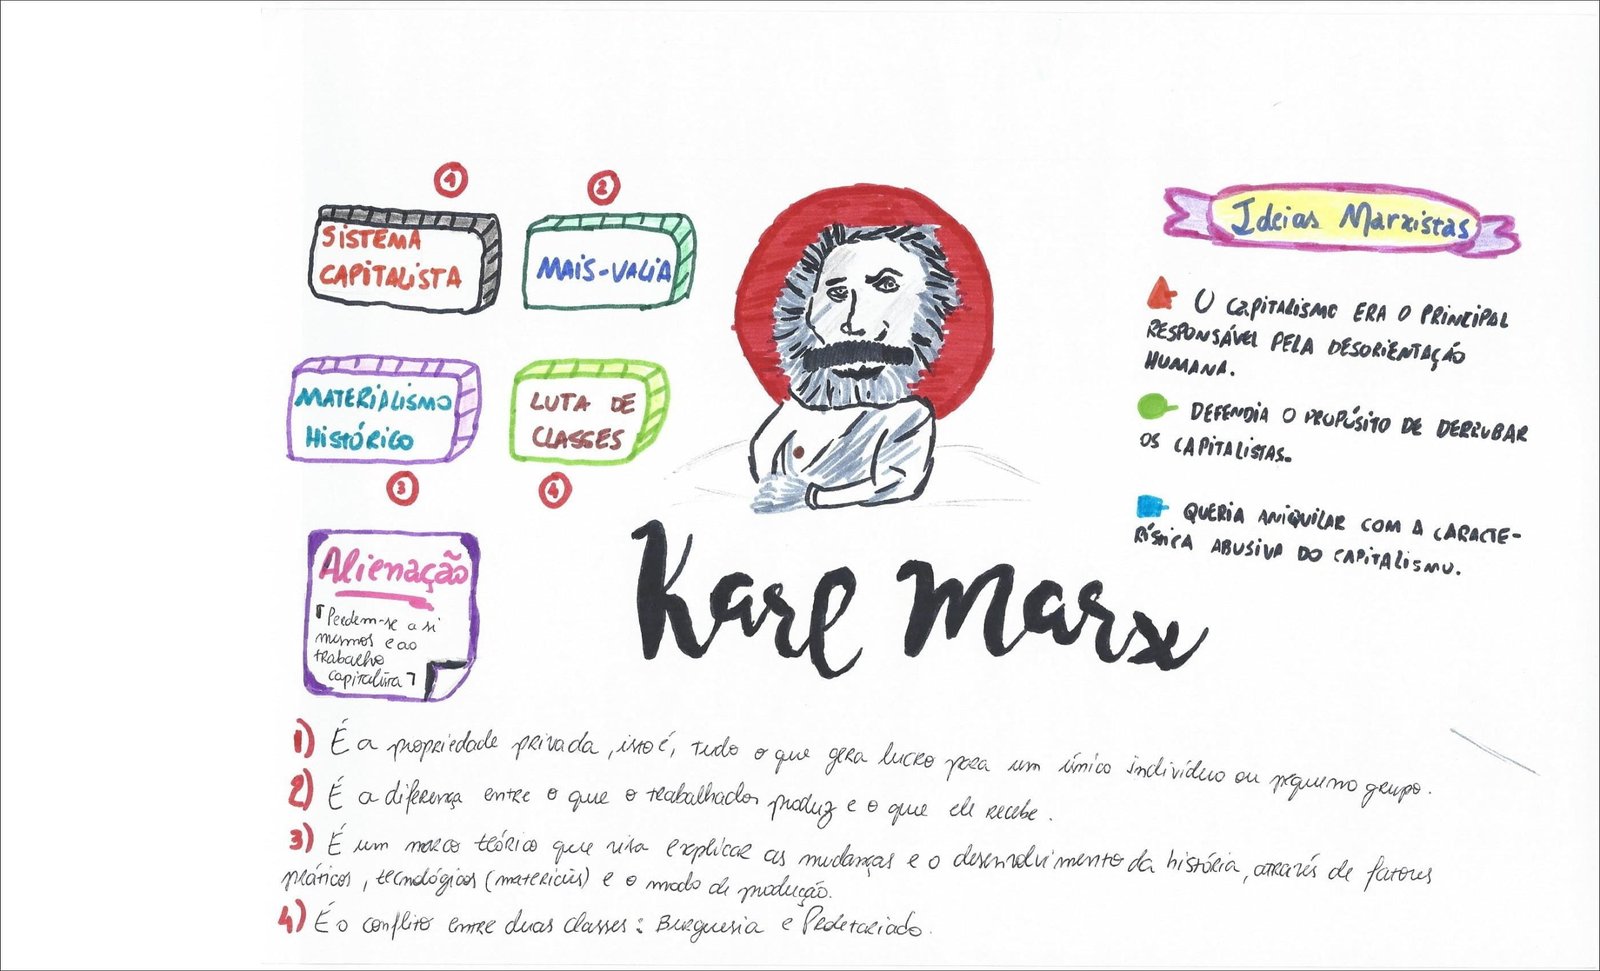 1
SISTEMA
CAPITALISTA
2
MAIS-VALIA
MATERIALISMO
HISTÓRICO
3
LUTA DE
CLASSES
4
Alienação
"Perdem-se a si
mesmos e ao
trabalho
capitalista"
Karl Marx
Ideias Marxistas
O CAPITALISMO ERA O PRINCIPAL
RESPONSÁVEL PELA DESORIENTAÇÃO
HUMANA.
DEFENDIA O PROPÓSITO DE DERRUBAR
OS CAPITALISTAS.
QUERIA ANIQUILAR COM A CARACTE-
RÍSTICA ABUSIVA DO CAPITALISMO.
1) É a propriedade privada, isto é, tudo o que gera lucro para um único indivíduo ou pequeno grupo.
2) É a diferença entre o que o trabalhador produz e o que ele recebe.
3) É um marco teórico que visa explicar as mudanças e o desenvolvimento da história, através de fatores
práticos, tecnológicos (materiais) e o modo de produção.
4) É o conflito entre duas classes: Burguesia e Proletariado.